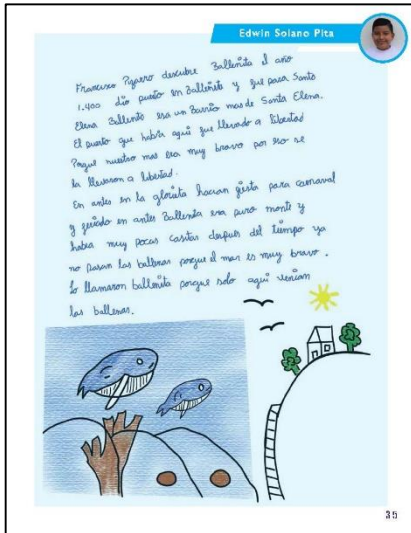 Edwin Solano Pita
Francisco Pizarro descubre Ballenita el año
1.400 dio puerto en Balleñita y fue para Santa
Elena Ballenita era un Barrio mas de Santa Elena.
El puerto que habia aqui fue llevado a libertad
Porque nuestro mar era muy bravo por eso se
la llevaron a libertad.
En antes en la glorieta hacian fiesta para carnaval
y feriado en antes Ballenita era puro monte y
habia muy pocas casitas después del tiempo ya
no pasan las ballenas porque el mar es muy bravo.
Lo llamaron ballenita porque solo aqui venian
las ballenas.
35